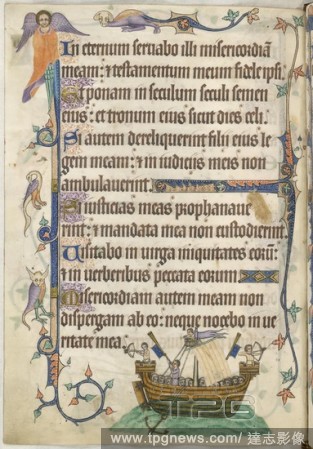 In eternum seruabo illi misericordiā
meam: & testamentum meum fidele ipsi.
Et ponam in seculum seculi semen
eius: et tronum eius sicut dies celi.
Si autem dereliquerint filii eius le
gem meam: & in iudicijs meis non
ambulauerint.
Si iusticias meas prophanaue
rint: & mandata mea non custodierint
Uisitabo in uirga iniquitates eorū:
& in uerberibus peccata eorum
Misericordiam autem meam non
dispergam ab eo: neque nocebo in ue
ritate mea.
TPG
www.tpgnews.com/ 達志影像